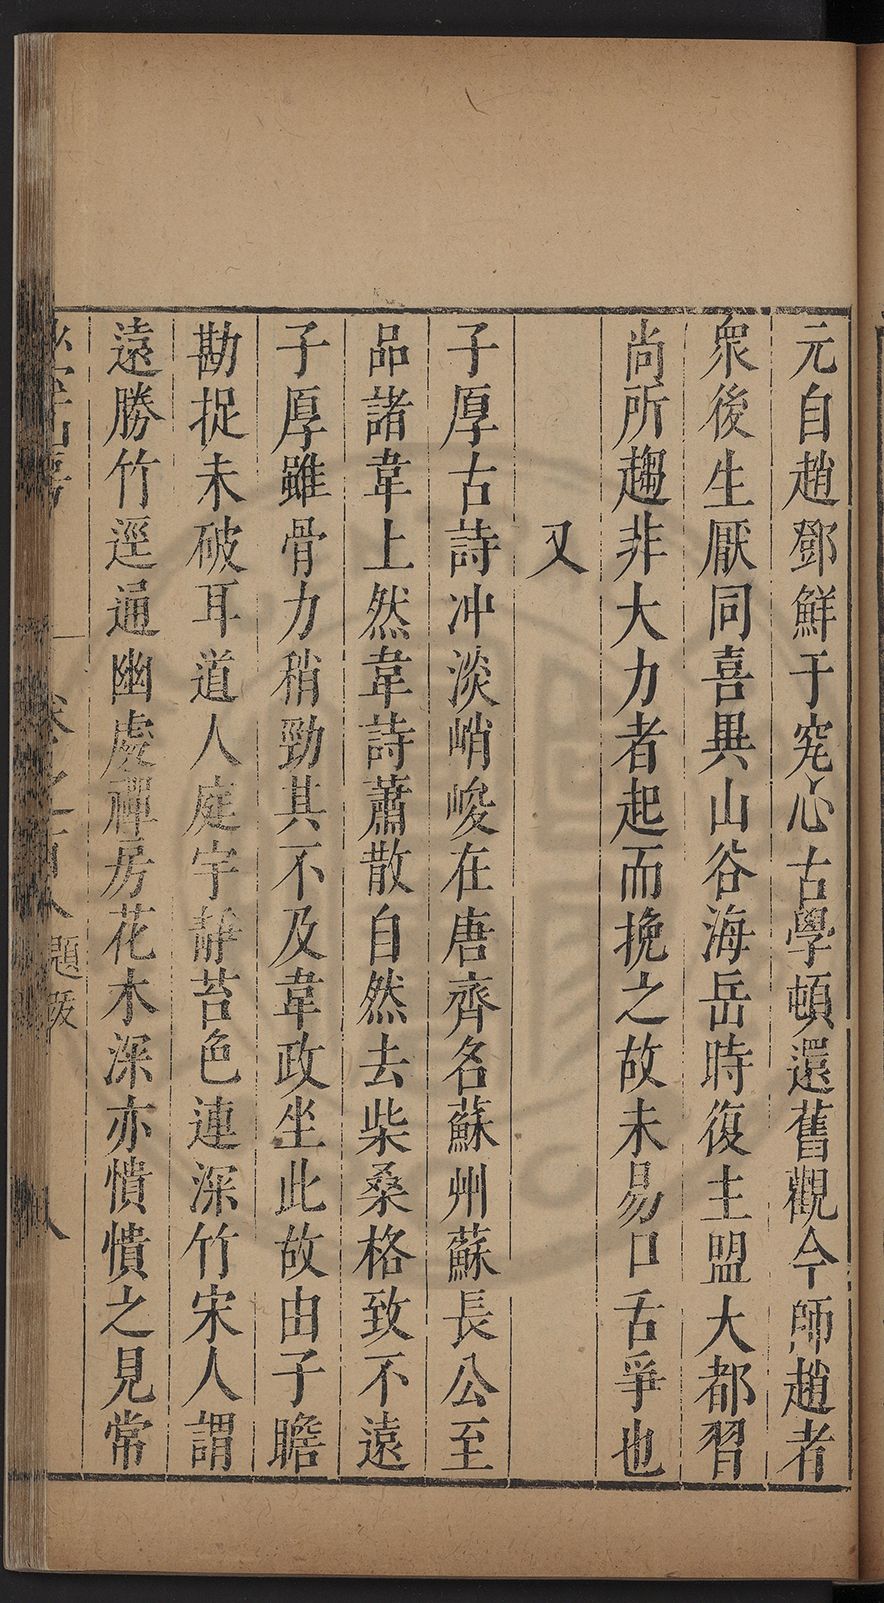 元自趙鄧鮮于究心古學頓還舊觀今師趙者
衆後生厭同喜異山谷海岳時復主盟大都習
尚所趨非大力者起而挽之故未易口舌爭也
又
子厚古詩冲淡峭峻在唐齊名蘇州蘇長公至
品諸韋上然韋詩蕭散自然去柴桑格致不遠
子厚雖骨力稍勁其不及韋政坐此故由子瞻
勘捉未破耳道人庭宇靜苔色連深竹宋人謂
遠勝竹逕通幽處禪房花木深亦憒憒之見常
題跋
八